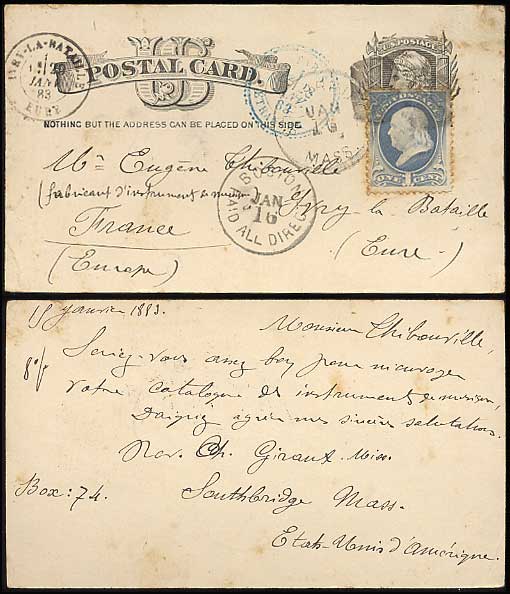 IVRY-LA-BATAILLE
JAN
83
EURE
U.S. POSTAGE
POSTAL CARD.
US
NOTHING BUT THE ADDRESS CAN BE PLACED ON THIS SIDE.
JAN
16
MASS
U.S. POSTAGE
ONE CENT
Mr Eugène Thibouville
(fabricant d'instruments de musique)
BOSTON
JAN
16
PAID ALL DIREC
Ivry la Bataille
France
(Eure)
(Europe)
15 janvier 1883.
Monsieur Thibouville,
Seriez-vous assez bon pour m'envoyer
votre catalogue des instruments de musique,
Daignez agréer mes sincères salutations.
Rev. Ch. Giraux. Miss.
Box: 74.
Southbridge Mass.
Etats-Unis d'Amérique.